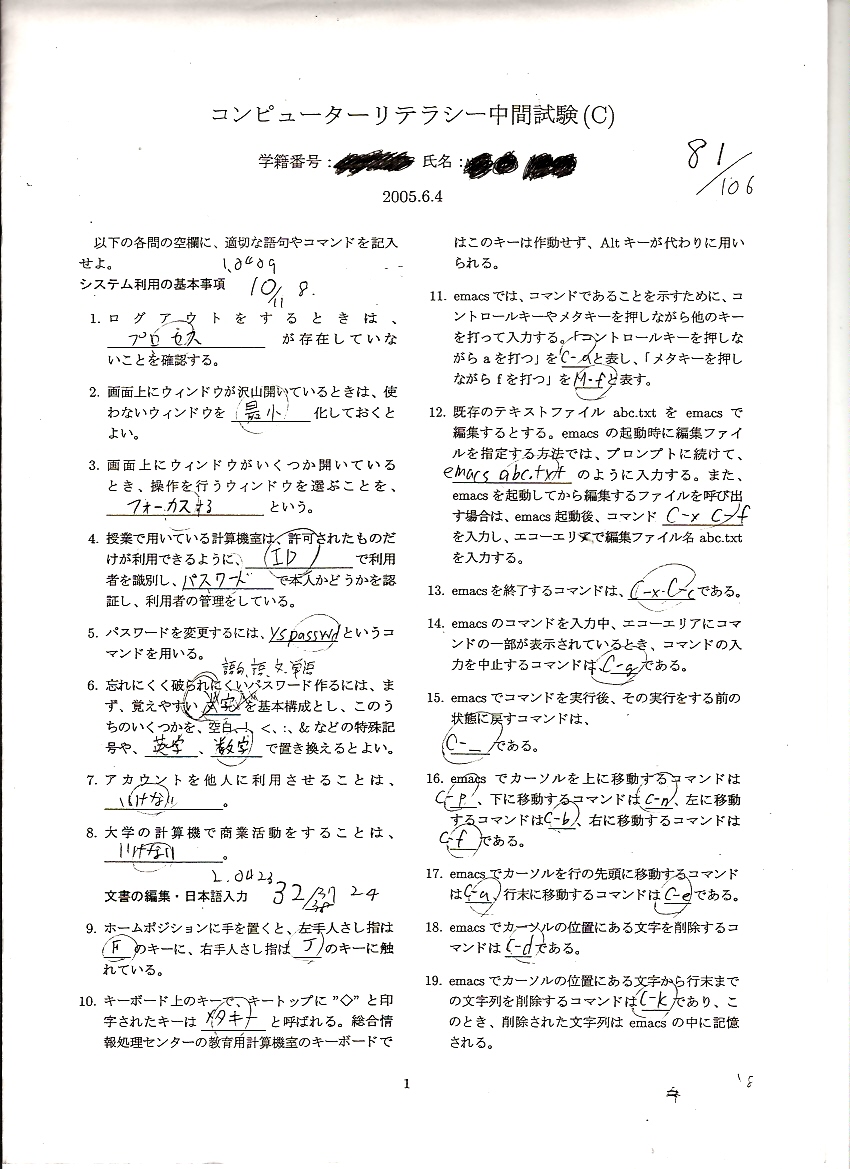 コンピューターリテラシー中間試験(C)
学籍番号： 氏名：
81/106
2005.6.4
以下の各問の空欄に、適切な語句やコマンドを記入
せよ。
1.0409
システム利用の基本事項 10/11 8.
1. ログアウトをするときは、
プロセス が存在していな
いことを確認する。
2. 画面上にウィンドウが沢山開いているときは、使
わないウィンドウを 最小 化しておくと
よい。
3. 画面上にウィンドウがいくつか開いている
とき、操作を行うウィンドウを選ぶことを、
フォーカスする という。
4. 授業で用いている計算機室は、許可されたものだ
けが利用できるように、 ID で利用
者を識別し、パスワード で本人かどうかを認
証し、利用者の管理をしている。
5. パスワードを変更するには、yspasswd というコ
マンドを用いる。
6. 忘れにくく破られにくいパスワード作るには、ま
ず、覚えやすい を基本構成とし、このう
ちのいくつかを、空白、!、<、:、& などの特殊記
号や、 英字 、 数字 で置き換えるとよい。
7. アカウントを他人に利用させることは、
いけない 。
8. 大学の計算機で商業活動をすることは、
いけない 。
2.0423
文書の編集・日本語入力 32/37 24
38
9. ホームポジションに手を置くと、左手人さし指は
F のキーに、右手人さし指は J のキーに触
れている。
10. キーボード上のキーで、キートップに ”◇” と印
字されたキーは メタキー と呼ばれる。総合情
報処理センターの教育用計算機室のキーボードで
はこのキーは作動せず、Alt キーが代わりに用い
られる。
11. emacs では、コマンドであることを示すために、コ
ントロールキーやメタキーを押しながら他のキー
を打って入力する。「コントロールキーを押しな
がら a を打つ」を C-a と表し、「メタキーを押し
ながら f を打つ」を M-f と表す。
12. 既存のテキストファイル abc.txt を emacs で
編集するとする。emacs の起動時に編集ファイ
ルを指定する方法では、プロンプトに続けて、
emacs abc.txt のように入力する。また、
emacs を起動してから編集するファイルを呼び出
す場合は、emacs 起動後、コマンド C-x C-f
を入力し、エコーエリアで編集ファイル名 abc.txt
を入力する。
13. emacs を終了するコマンドは、C-x C-c である。
14. emacs のコマンドを入力中、エコーエリアにコマ
ンドの一部が表示されているとき、コマンドの入
力を中止するコマンドは C-g である。
15. emacs でコマンドを実行後、その実行をする前の
状態に戻すコマンドは、
C-_ である。
16. emacs でカーソルを上に移動するコマンドは
C-p 、下に移動するコマンドは C-n 、左に移動
するコマンドは C-b 、右に移動するコマンドは
C-f である。
17. emacs でカーソルを行の先頭に移動するコマンド
は C-a 、行末に移動するコマンドは C-e である。
18. emacs でカーソルの位置にある文字を削除するコ
マンドは C-d である。
19. emacs でカーソルの位置にある文字から行末まで
の文字列を削除するコマンドは C-k であり、こ
のとき、削除された文字列は emacs の中に記憶
される。
1